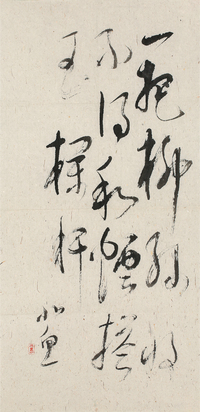 一把柳絲收
不得和煙搭
在玉欄杆
小魚